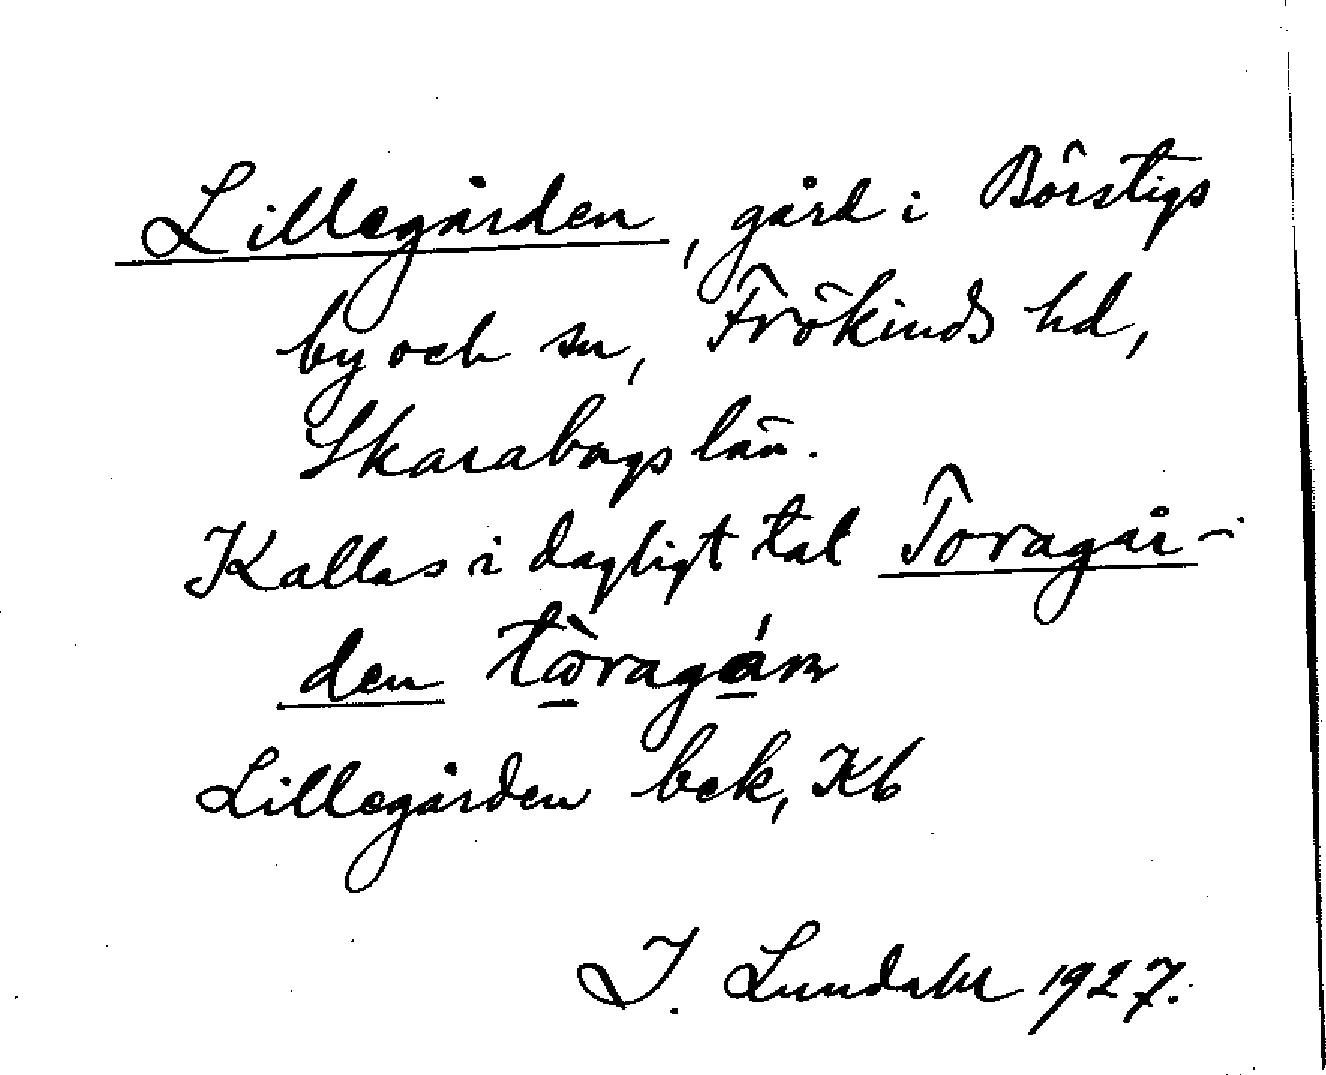 Lillegården, gård i Börstigs
by och sn, Frökinds hd,
Skarabogs län.
Kallas i dagligt tal Toragår-
den tòragánr
Lillegården bek, Kb
I. Lundahl 1927.